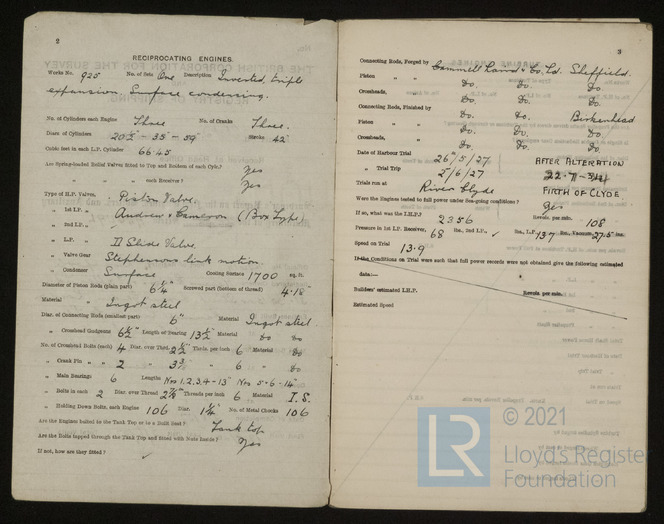 2
RECIPROCATING ENGINES.
Works No. 925 No. of Sets One Description Inverted, triple
expansion. Surface condensing.
No. of Cylinders each Engine Three No. of Cranks Three.
Diars. of Cylinders 20½ - 35 - 59 Stroke 42"
Cubic feet in each L.P. Cylinder 66.45
Are Spring-loaded Relief Valves fitted to Top and Bottom of each Cylr.? Yes
" " " each Receiver? Yes
Type of H.P. Valves, Piston Valve.
" 1st I.P. " Andrew & Cameron (Box Type)
" 2nd I.P. "
" L.P. " D Slide Valve.
" Valve Gear Stephensons link motion.
" Condenser Surface Cooling Surface 1700 sq. ft.
Diameter of Piston Rods (plain part) 6¼" Screwed part (bottom of thread) 4.18"
Material Ingot steel
Diar. of Connecting Rods (smallest part) 6" Material Ingot steel
" Crosshead Gudgeons Length of Bearing Material Do Do
No. of Crosshead Bolts (each) 4 Diar. over Thrd. 2½" Thrds. per inch 6 Material Do
" Crank Pin " " 2 " " 6 " Do
" Main Bearings 6 Lengths Nos 1.2.3.4 - 13" Nos 5 - 6 - 14"
" Bolts in each 2 Diar. over Thread Threads per inch 6 Material I.S.
" Holding Down Bolts, each Engine 106 Diar. 1¼" No. of Metal Chocks 106
Are the Engines bolted to the Tank Top or to a Built Seat? Tank top
Are the Bolts tapped through the Tank Top and fitted with Nuts Inside? Yes
If not, how are they fitted? ✓
3
Connecting Rods, Forged by Cammell Laird & Co. Ld. Sheffield.
Piston " " Do. Do. Do.
Crossheads, " Do. Do. Do.
Connecting Rods, Finished by Do. Do. Birkenhead
Piston " " Do. Do. Do.
Crossheads, " Do. Do. Do.
Date of Harbour Trial 26/5/27 AFTER ALTERATION
" Trial Trip 2/6/27 22-7-34
Trials run at River Clyde FIRTH OF CLYDE
Were the Engines tested to full power under Sea-going conditions? Yes
If so, what was the I.H.P.? 2356 Revols. per min. 108
Pressure in 1st I.P. Receiver, 68 lbs., 2nd I.P., ✓ lbs., L.P., 13.7 lbs., Vacuum, 27.5 ins.
Speed on Trial 13.9
If the Conditions on Trial were such that full power records were not obtained give the following estimated
data:—
Builders' estimated I.H.P. Revols. per min.
Estimated Speed
© 2021
LR
Lloyd's Register
Foundation